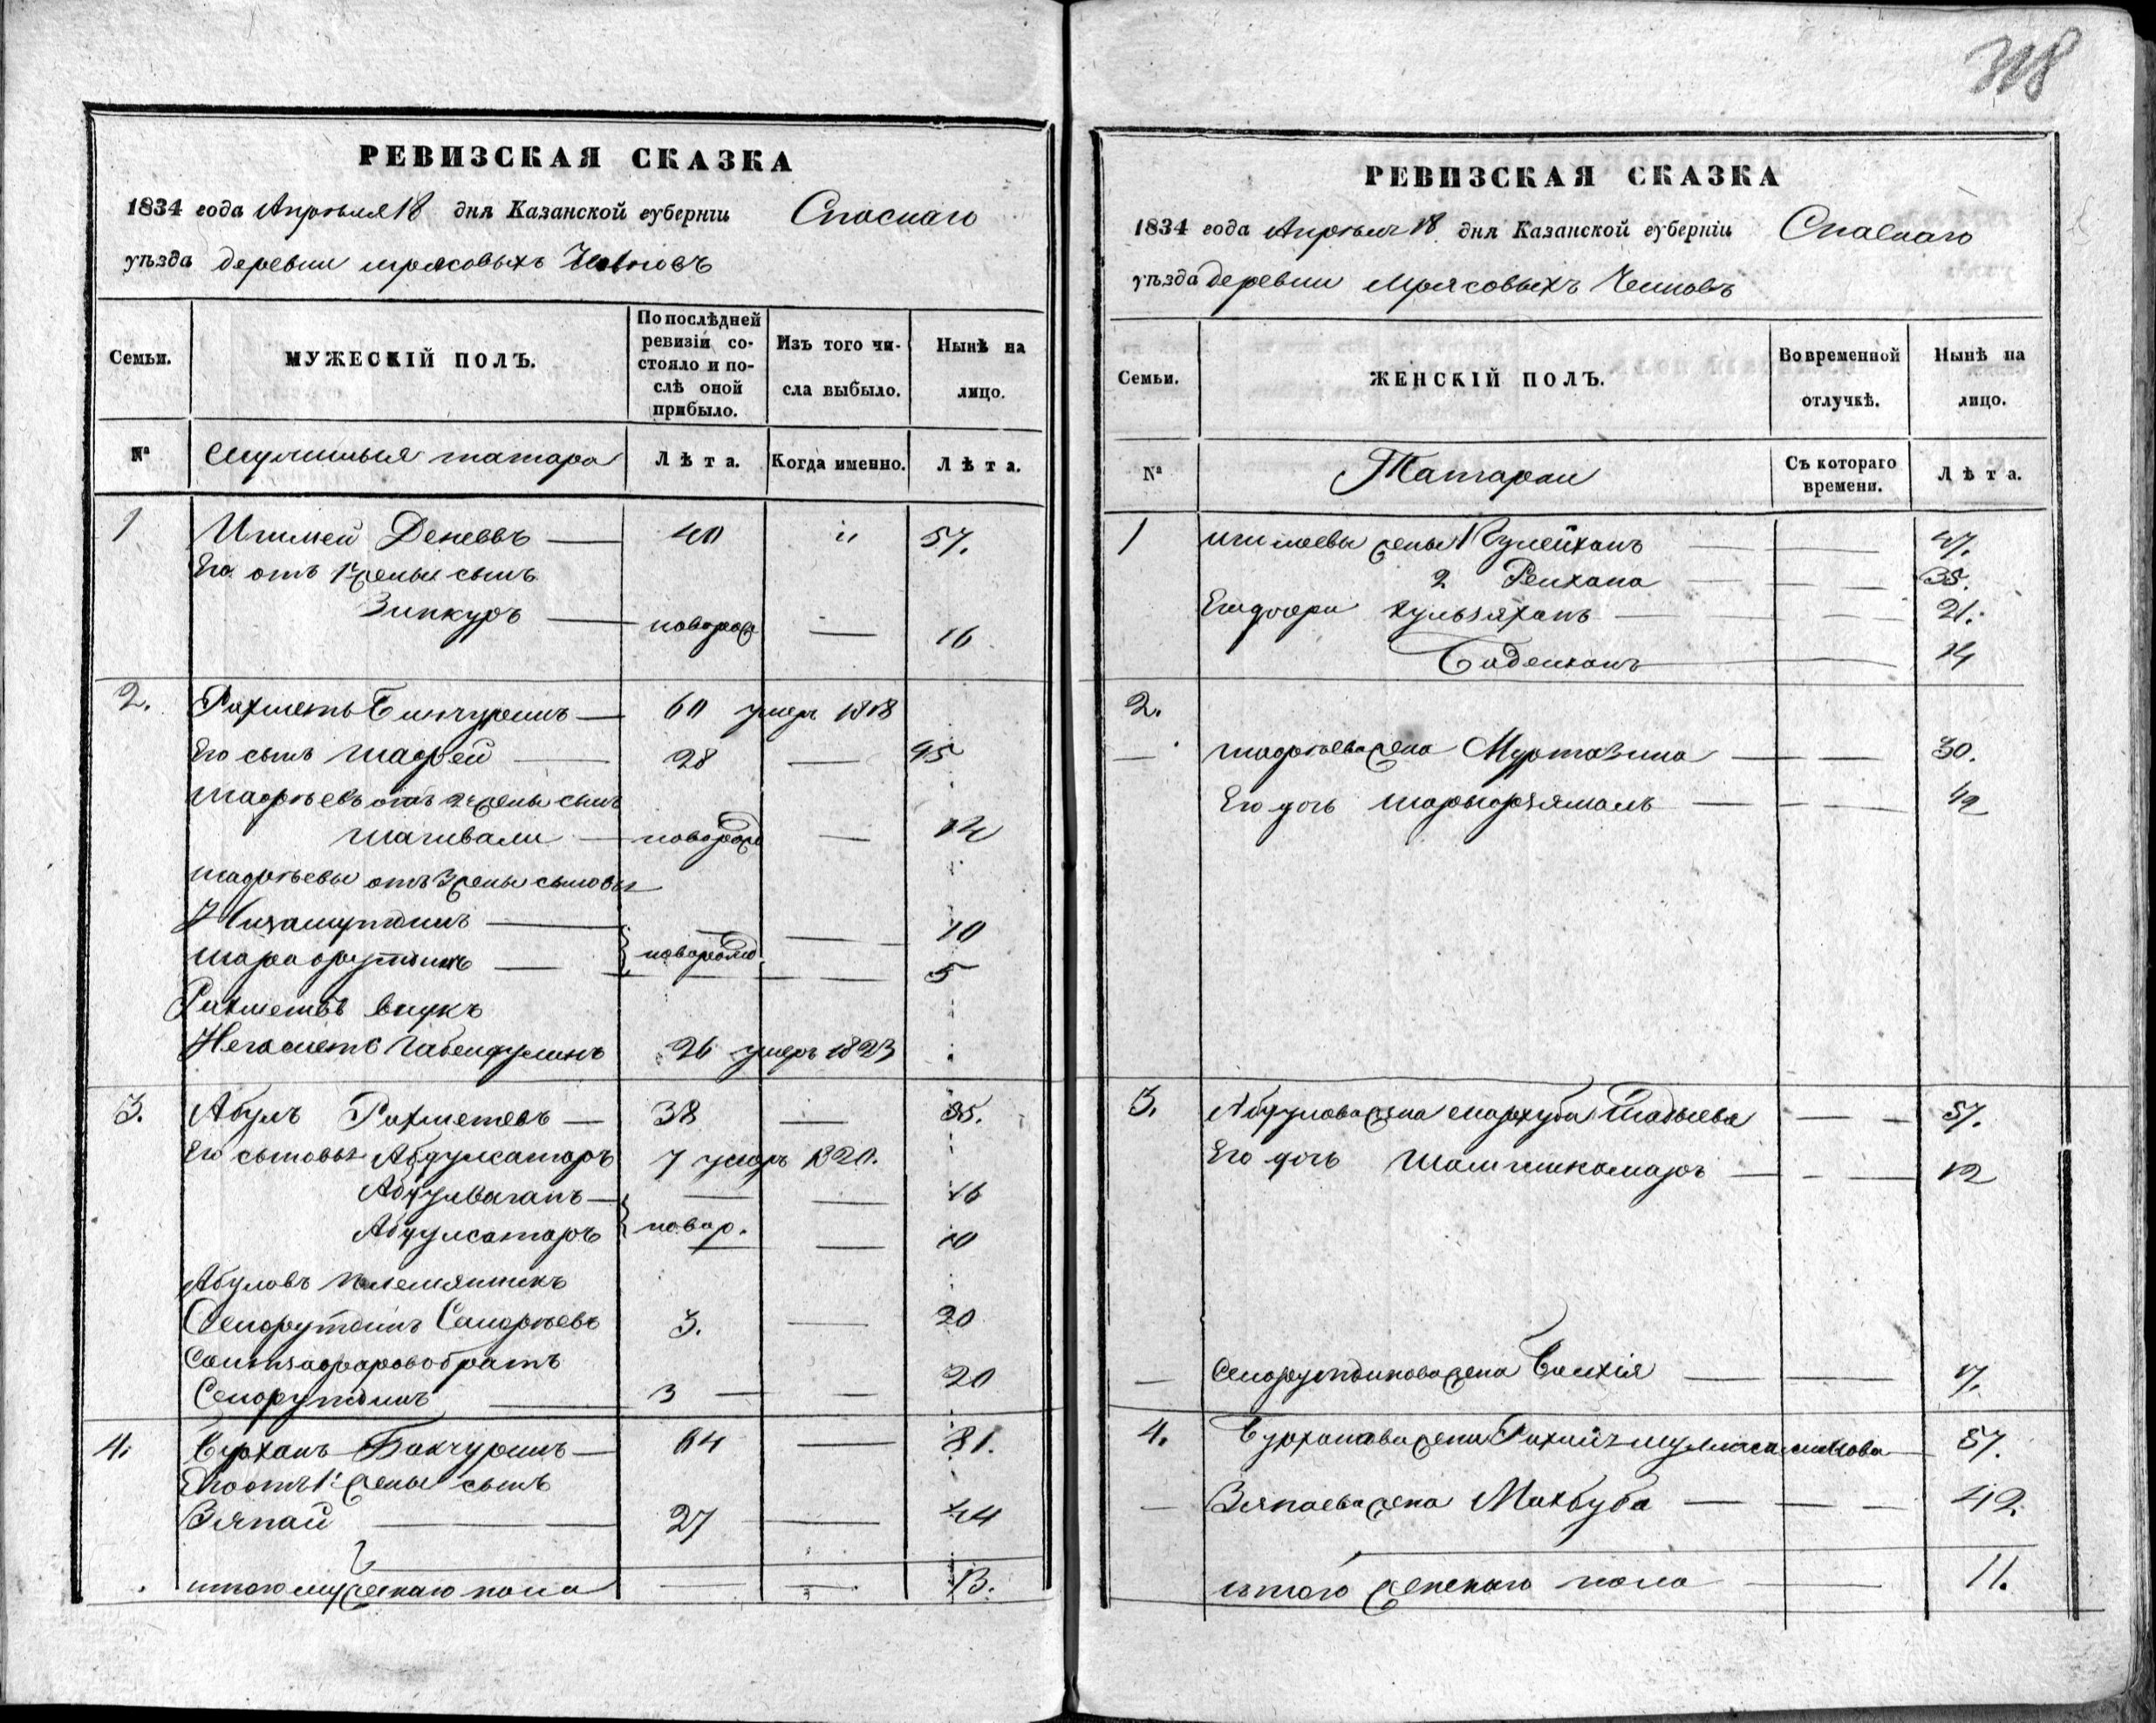 318
РЕВИЗСКАЯ СКАЗКА
1834 года Апреля 18 дня Казанской губернiи Спаскаго
уѣзда деревни мрясовыхъ
Семьи.
МУЖЕСКIЙ ПОЛЪ.
По послѣдней ревизiи состояло и послѣ оной прибыло.
Изъ того числа выбыло.
Нынѣ на лицо.
№
татара
Лѣта.
Когда именно.
Лѣта.
1 Ишмей Денеевъ — 40 " 57.
Его отъ 1й жены сынъ
Зинкуръ — новорож — 16
2. Рахметь Бикчуринъ — 60 умеръ 1818
Его сынъ Шафей — 28 — 45
Шафѣевъ отъ 2й жены сынъ
Шагивали — новорожд —
Шафѣевы отъ 3 жены сыновья
Низамутдинъ — 10
Шарафутдинъ — новорожд. — 5
Рахметевъ внукъ
Негаметь Габейдулинъ 26 умеръ 1823
3. Абулъ Рахметевъ — 38 — 55.
Его сыновья Абдулсатаръ 7 умеръ 1820.
Абдулвагапъ — — 16
Абдулсатаръ новор. — 10
Абуловъ племянникъ
Сейфутдинъ 3. — 20
братъ
Сейфутдинъ — 3 — — 20
4. Бурханъ Бакчуринъ — 64 — 81.
Его отъ 1й жены сынъ
Вяпай — 27 — 44
итого мужескаго пола — — 13.
РЕВИЗСКАЯ СКАЗКА
1834 года Апреля 18 дня Казанской губернiи Спаскаго
уѣзда деревни Мрясовыхъ
Семьи.
ЖЕНСКIЙ ПОЛЪ.
Во временной отлучкѣ.
Нынѣ на лицо.
№
Татарки
Съ котораго времени.
Лѣта.
1 Ишмеевы жены 1 Кулейханъ — — 47.
2 Рейхана — — 35.
Его дочери Хульзяханъ — — 21.
Бадейханъ — 14
2.
— Шафѣева жена Муртазина — — 30.
Его дочь — — 12
3. Абдулова жена Шафыева — — 57.
Его дочь Шамшикамаръ — — 12
— Сейфутдинова жена — — 17.
4. Бурханова жена — 57.
— Вяпаева жена Махбуба — — 42.
итого женскаго пола — — 11.